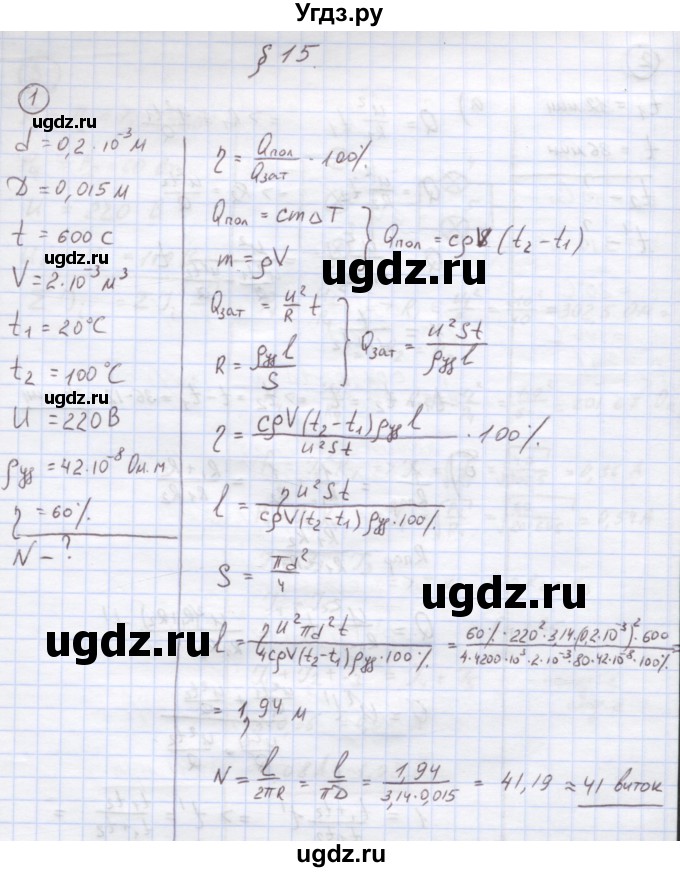 Угдз.ру
§ 15.
1
ugdz.ru
d = 0,2 · 10⁻³ м
D = 0,015 м
t = 600 с
ugdz.ru
V = 2 · 10⁻³ м³
t₁ = 20°C
t₂ = 100°C
ugdz.ru
U = 220 В
ρуд = 42 · 10⁻⁸ Ом·м
η = 60%
N – ?
ugdz.ru
ugdz.ru
η = Qпол/Qзат · 100%
Qпол = cmΔT
m = ρV
Qпол = cρV (t₂ – t₁)
ugdz.ru
Qзат = u²/R t
R = ρуд l/S
Qзат = u²St/ρуд l
η = cρV(t₂–t₁)ρуд l/u²St · 100%
l = ηu²St/cρV(t₂–t₁)ρуд·100%
S = πd²/4
ugdz.ru
l = ηu²πd²t/4cρV(t₂–t₁)ρуд·100% = 60%·220²·3,14·(0,2·10⁻³)²·600/4·4200·10³·2·10⁻³·80·42·10⁻⁸·100% =
= 1,94 м
N = l/2πR = l/πD = 1,94/3,14·0,015 = 41,19 ≈ 41 виток
ugdz.ru
ugdz.ru